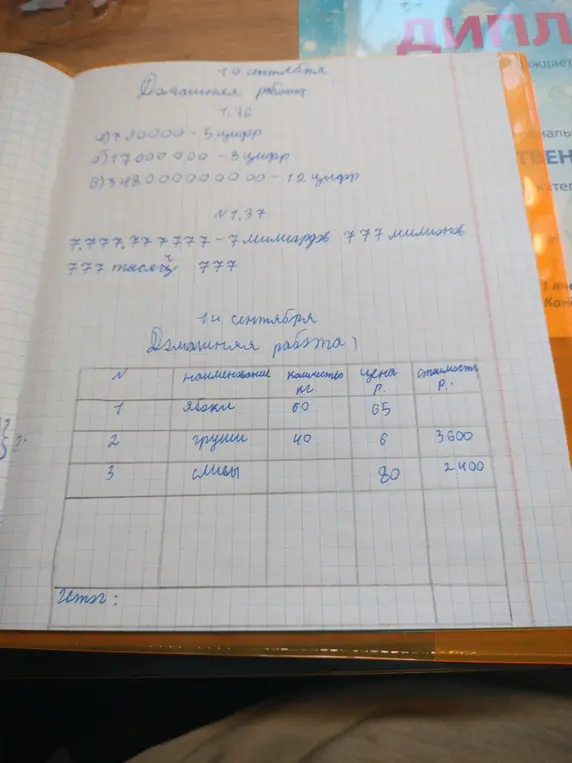 ДИПЛ
10 сентября
Домашняя работа
1.36
а) 710000 - 5 цифр
б) 17000000 - 8 цифр
в) 348000000000 - 12 цифр
№1.37
7.777.777777 - 7 милиардов 777 милионов
777 тысяч 777
14 сентября
Домашняя работа
N наименование количество кг цена р. стоимость р.
1 яблоки 60 65
2 груши 40 6 3600
3 сливы 80 2400
Итог: